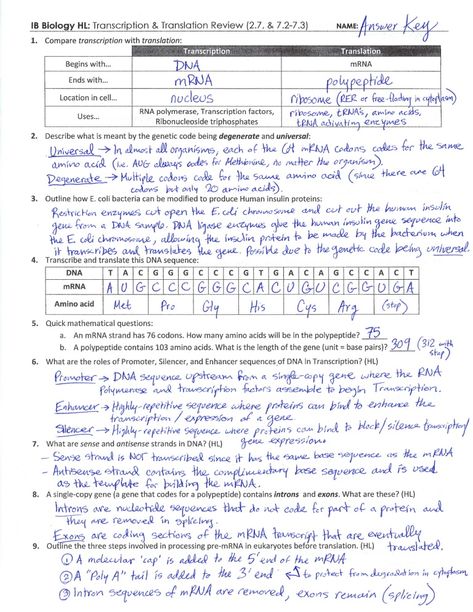 IB Biology HL: Transcription & Translation Review (2.7. & 7.2-7.3) NAME: Answer Key
1. Compare transcription with translation:
Transcription Translation
Begins with... DNA mRNA
Ends with... mRNA polypeptide
Location in cell... nucleus ribosome (RER or free-floating in cytoplasm)
Uses... RNA polymerase, Transcription factors, Ribonucleoside triphosphates ribosome, tRNA's, amino acids, tRNA activating enzymes
2. Describe what is meant by the genetic code being degenerate and universal:
Universal → In almost all organisms, each of the 64 mRNA codons codes for the same
amino acid (i.e. AUG always codes for Methionine, no matter the organism).
Degenerate → Multiple codons code for the same amino acid (since there are 64
codons but only 20 amino acids).
3. Outline how E. coli bacteria can be modified to produce Human insulin proteins:
Restriction enzymes cut open the E.coli chromosome and cut out the human insulin
gene from a DNA sample. DNA ligase enzymes glue the human insulin gene sequence into
the E. coli chromosome, allowing the insulin protein to be made by the bacterium when
it transcribes and translates the gene. Possible due to the genetic code being universal.
4. Transcribe and translate this DNA sequence:
DNA T A C G G G C C C G T G A C A C G C C A C T
mRNA A U G C C C G G G C A C U G U G C G G U G A
Amino acid Met Pro Gly His Cys Arg (stop)
5. Quick mathematical questions:
a. An mRNA strand has 76 codons. How many amino acids will be in the polypeptide? 75
b. A polypeptide contains 103 amino acids. What is the length of the gene (unit = base pairs)? 309 (312 with stop)
6. What are the roles of Promoter, Silencer, and Enhancer sequences of DNA in Transcription? (HL)
Promoter → DNA sequence upstream from a single-copy gene where the RNA
Polymerase and transcription factors assemble to begin Transcription.
Enhancer → Highly-repetitive sequence where proteins can bind to enhance the
transcription / expression of a gene.
Silencer → Highly-repetitive sequence where proteins can bind to block/silence transcription/
gene expression.
7. What are sense and antisense strands in DNA? (HL)
- Sense strand is NOT transcribed since it has the same base sequence as the mRNA
- Antisense strand contains the complimentary base sequence and is used
as the template for building the mRNA.
8. A single-copy gene (a gene that codes for a polypeptide) contains introns and exons. What are these? (HL)
Introns are nucleotide sequences that do not code for part of a protein and
they are removed in splicing.
Exons are coding sections of the mRNA transcript that are eventually
translated.
9. Outline the three steps involved in processing pre-mRNA in eukaryotes before translation. (HL)
① A molecular 'cap' is added to the 5' end of the mRNA
② A "Poly A" tail is added to the 3' end ↔ to protect from degradation in cytoplasm
③ Intron sequences of mRNA are removed, exons remain (splicing)